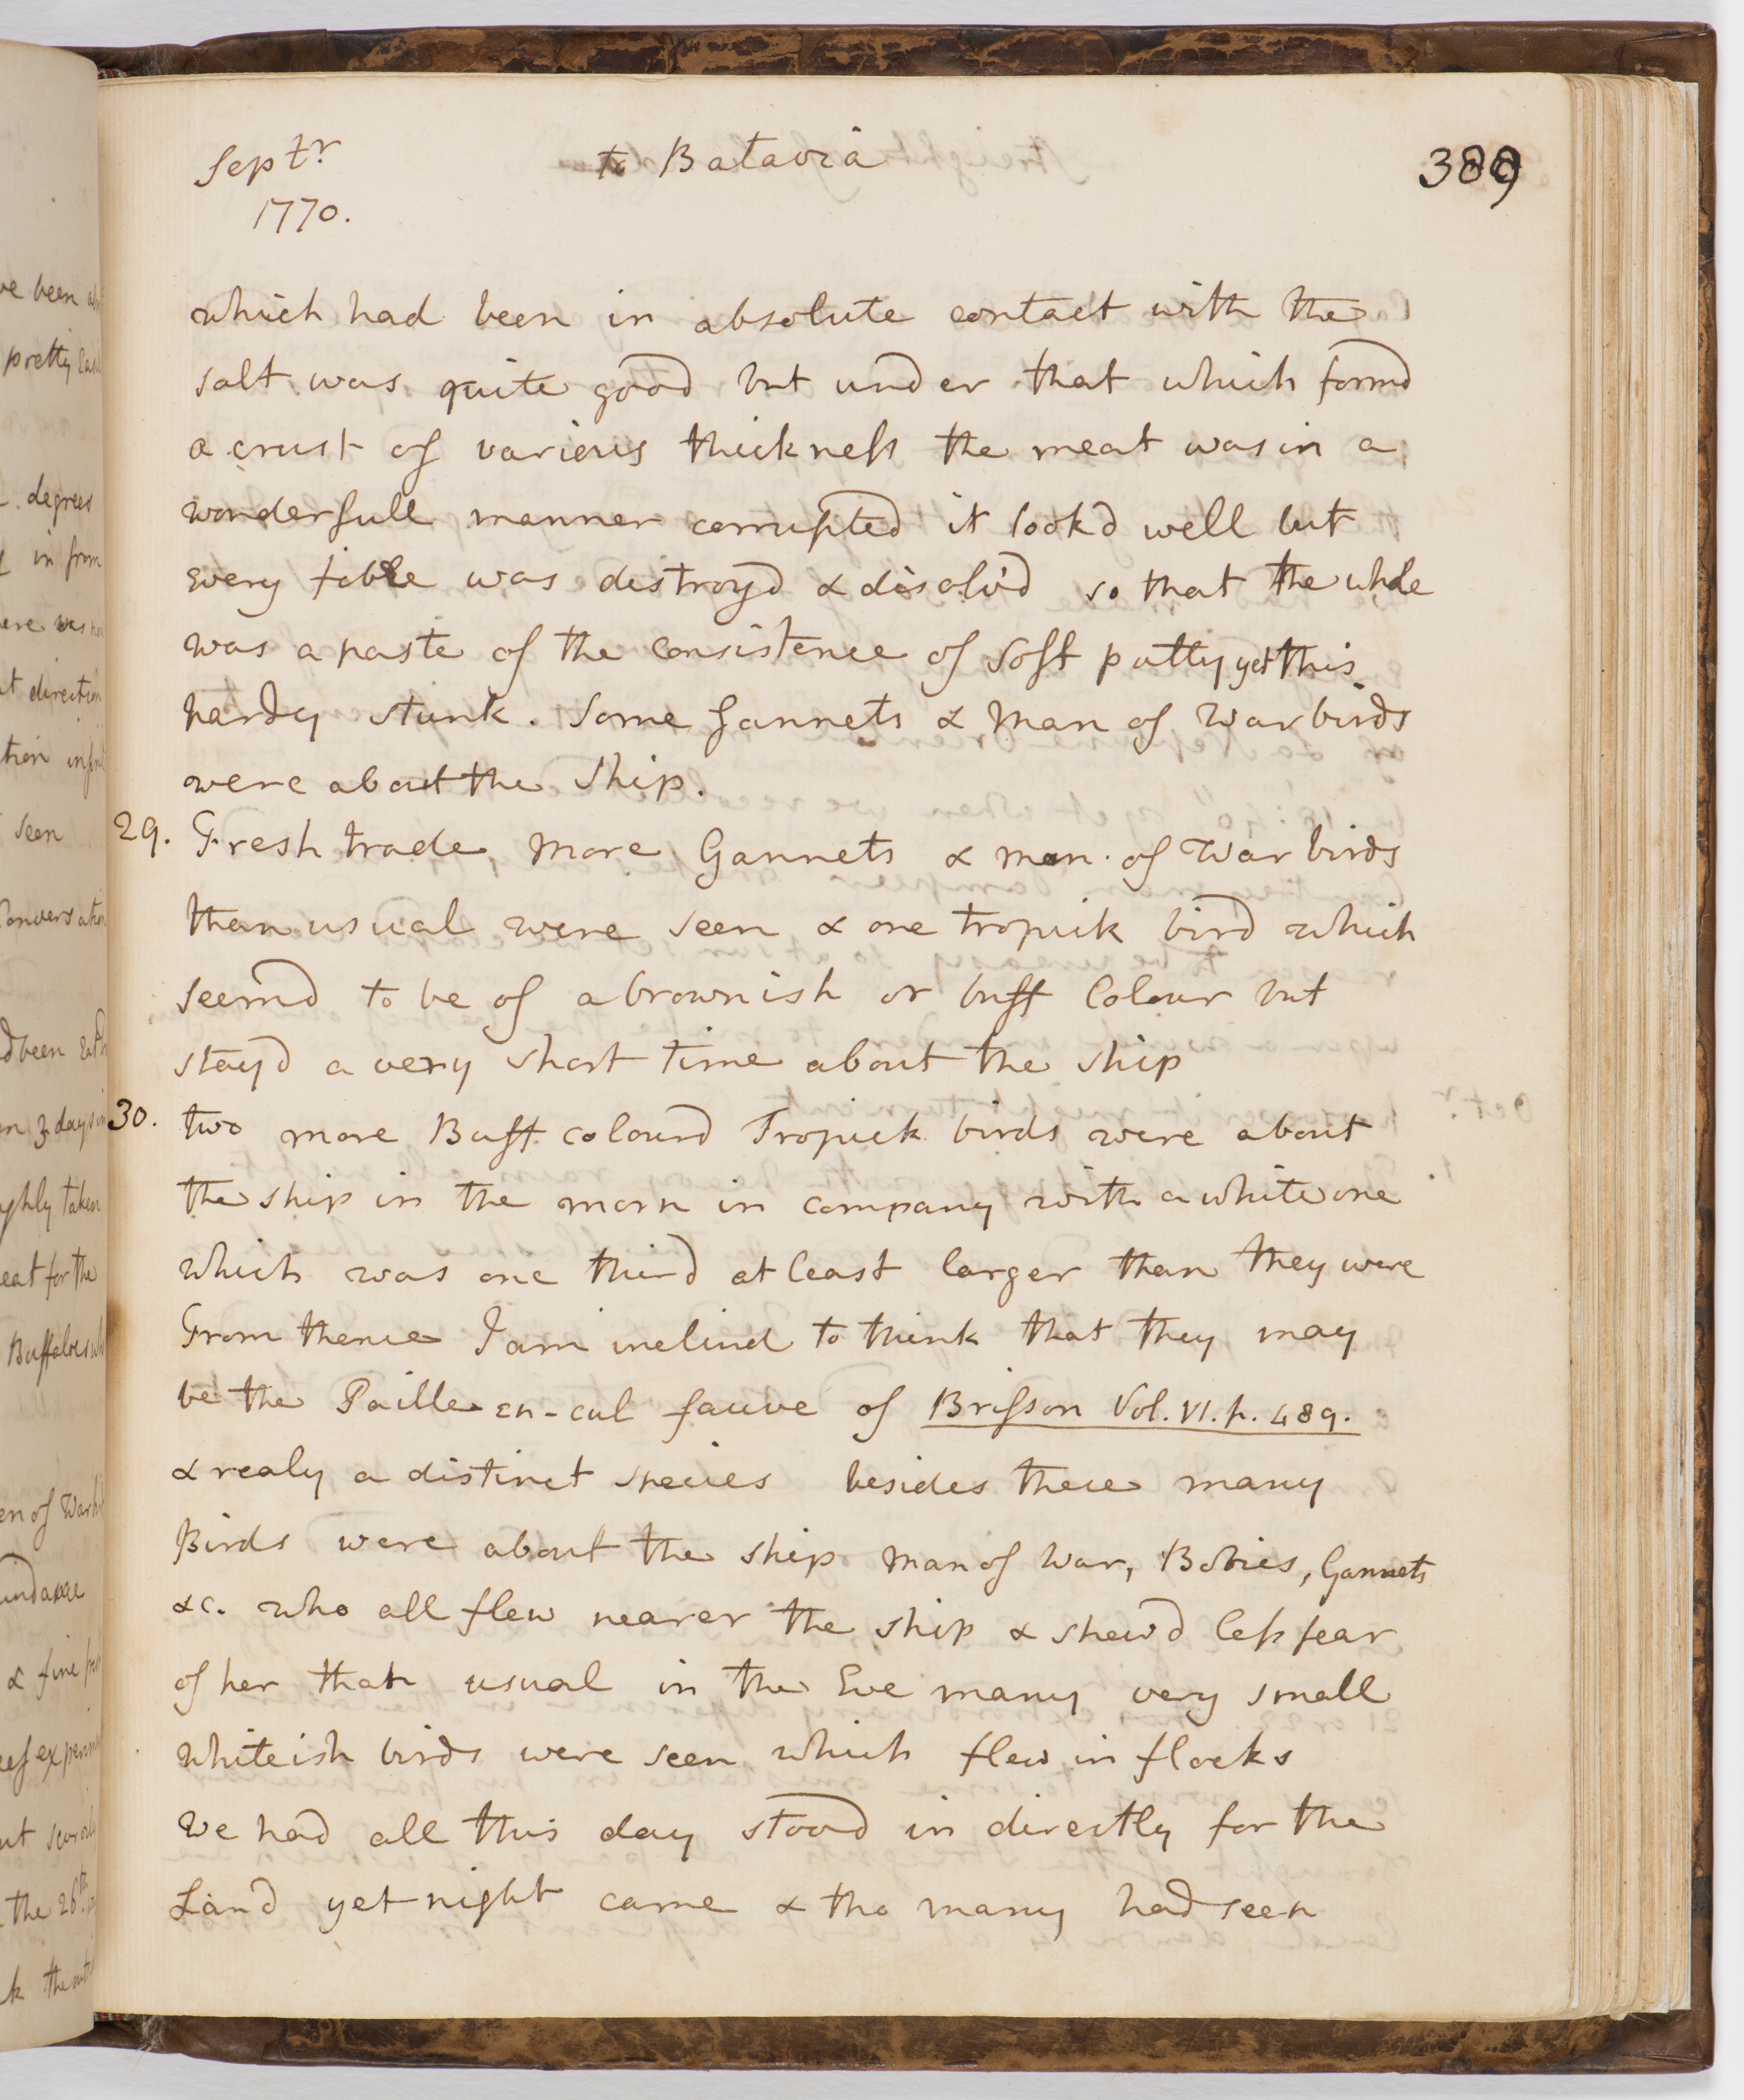 Septr to Batavia 389
1770.
which had been in absolute contact with the
salt was quite good but under that which formd
a crust of various thickness the meat was in a
wonderfull manner corrupted it look'd well but
every fibre was distroyd & disolv'd so that the whole
was a paste of the consistence of soft putty yet this
hardly stunk. Some Gannets & Man of War birds
were about the Ship.
29. Fresh trade, more Gannets & man of War birds
than usual were seen & one tropick bird which
seemd to be of a brownish or buff Colour but
stayd a very short time about the ship
30. two more Buff colourd Tropick birds were about
the ship in the morn in company with a white one
which was one third at least larger than they were
From thence I am inclind to think that they may
be the Paille-en-cul fauve of Brisson Vol. VI. p. 489.
& realy a distinct species besides these many
Birds were about the ship Man of War, Bobies, Gannets
&c. who all flew nearer the ship & shew'd less fear
of her than usual in the Eve many very small
whiteish birds were seen which flew in flocks
We had all this day stood in directly for the
Land yet night came & tho many had seen
ve been
pretty
degrees
in from
ere was
direction
tion
seen
Conversation
been
3 days
ghly taken
eat for the
Buffaloes
of War
& fine
the 26th